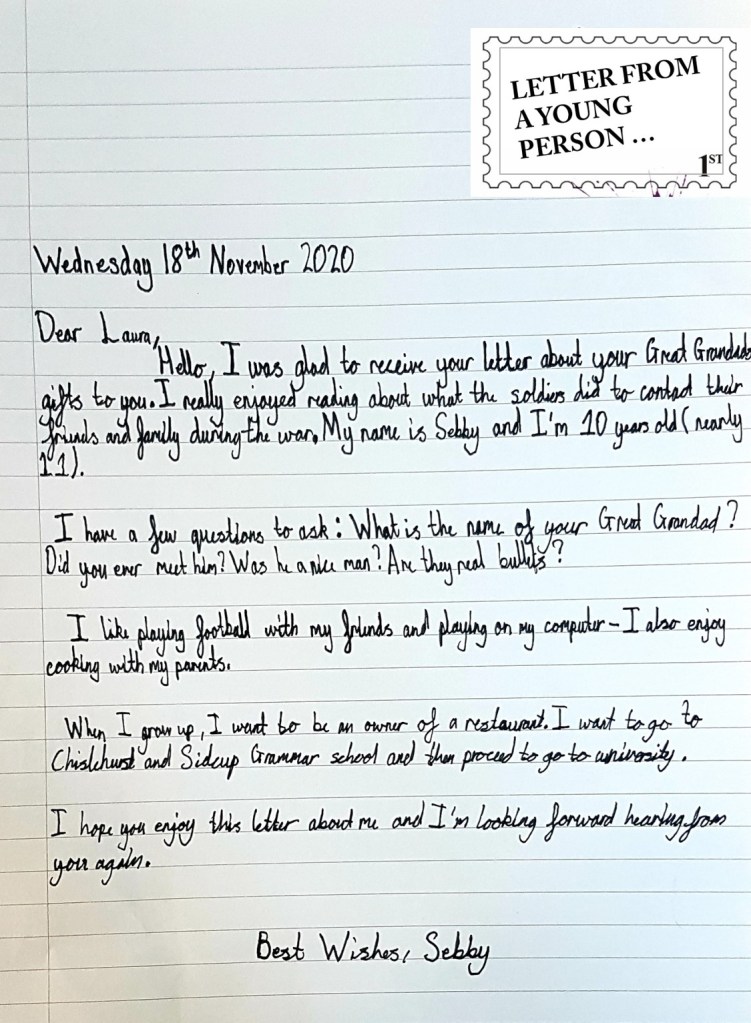 LETTER FROM
A YOUNG
PERSON ...
1ST
Wednesday 18th November 2020
Dear Laura,
Hello, I was glad to receive your letter about your Great Grandads
gifts to you. I really enjoyed reading about what the soldiers did to contact their
friends and family during the war. My name is Sebby and I'm 10 years old (nearly
11).
I have a few questions to ask: What is the name of your Great Grandad?
Did you ever meet him? Was he a nice man? Are they real bullets?
I like playing football with my friends and playing on my computer - I also enjoy
cooking with my parents.
When I grow up, I want to be an owner of a restaurant. I want to go to
Chislehurst and Sidcup Grammar school and then proceed to go to university.
I hope you enjoy this letter about me and I'm looking forward hearing from
you again.
Best Wishes, Sebby